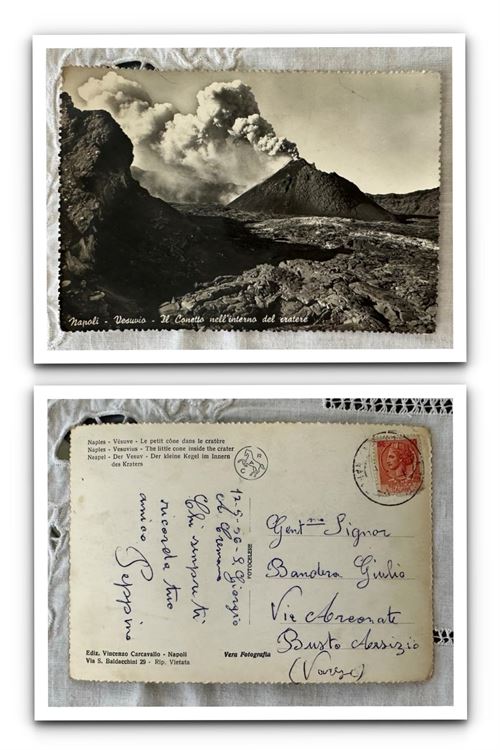 Napoli - Vesuvio - Il Conetto nell'interno del cratere
Naples - Vésuve - Le petit cône dans le cratère
Naples - Vesuvius - The little cone inside the crater
Neapel - Der Vesuv - Der kleine Kegel im Innern
des Kraters
12-9-56 - S. Giorgio
a Cremano
Chi sempre ti
ricorda tuo
amico Peppino
FOTOCELERE
Gent.mo Signor
Bandera Giulio
Via Arconate
Busto Arsizio
(Varese)
Ediz. Vincenzo Carcavallo - Napoli
Via S. Baldacchini 29 - Rip. Vietata
Vera Fotografia